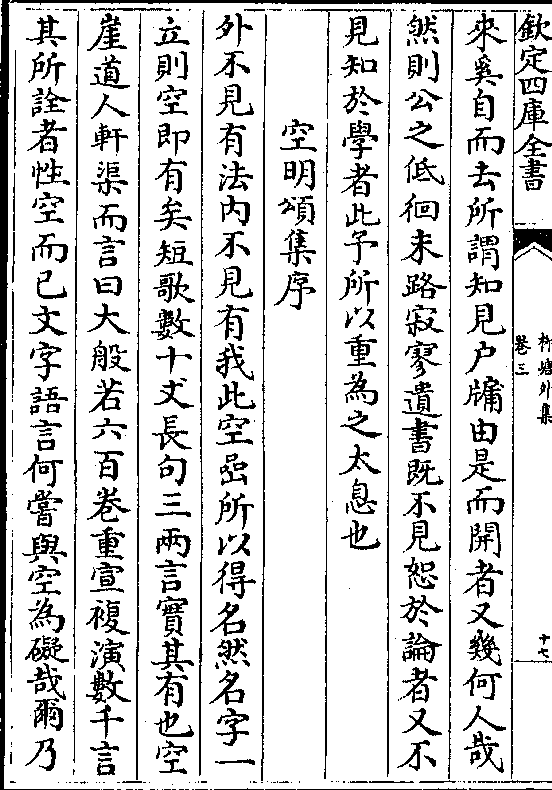 欽定四庫全書
柳塘外集
卷三
十七
來奚自而去所謂知見户牖由是而開者又幾何人哉
然則公之低徊末路寂寥遺書既不見恕於論者又不
見知於學者此予所以重為之太息也
空明頌集序
外不見有法内不見有我此空嵒所以得名然名字一
立則空即有矣短歌數十丈長句三兩言實其有也空
崖道人軒渠而言曰大般若六百卷重宣複演數千言
其所詮者性空而已文字語言何嘗與空為礙哉爾乃